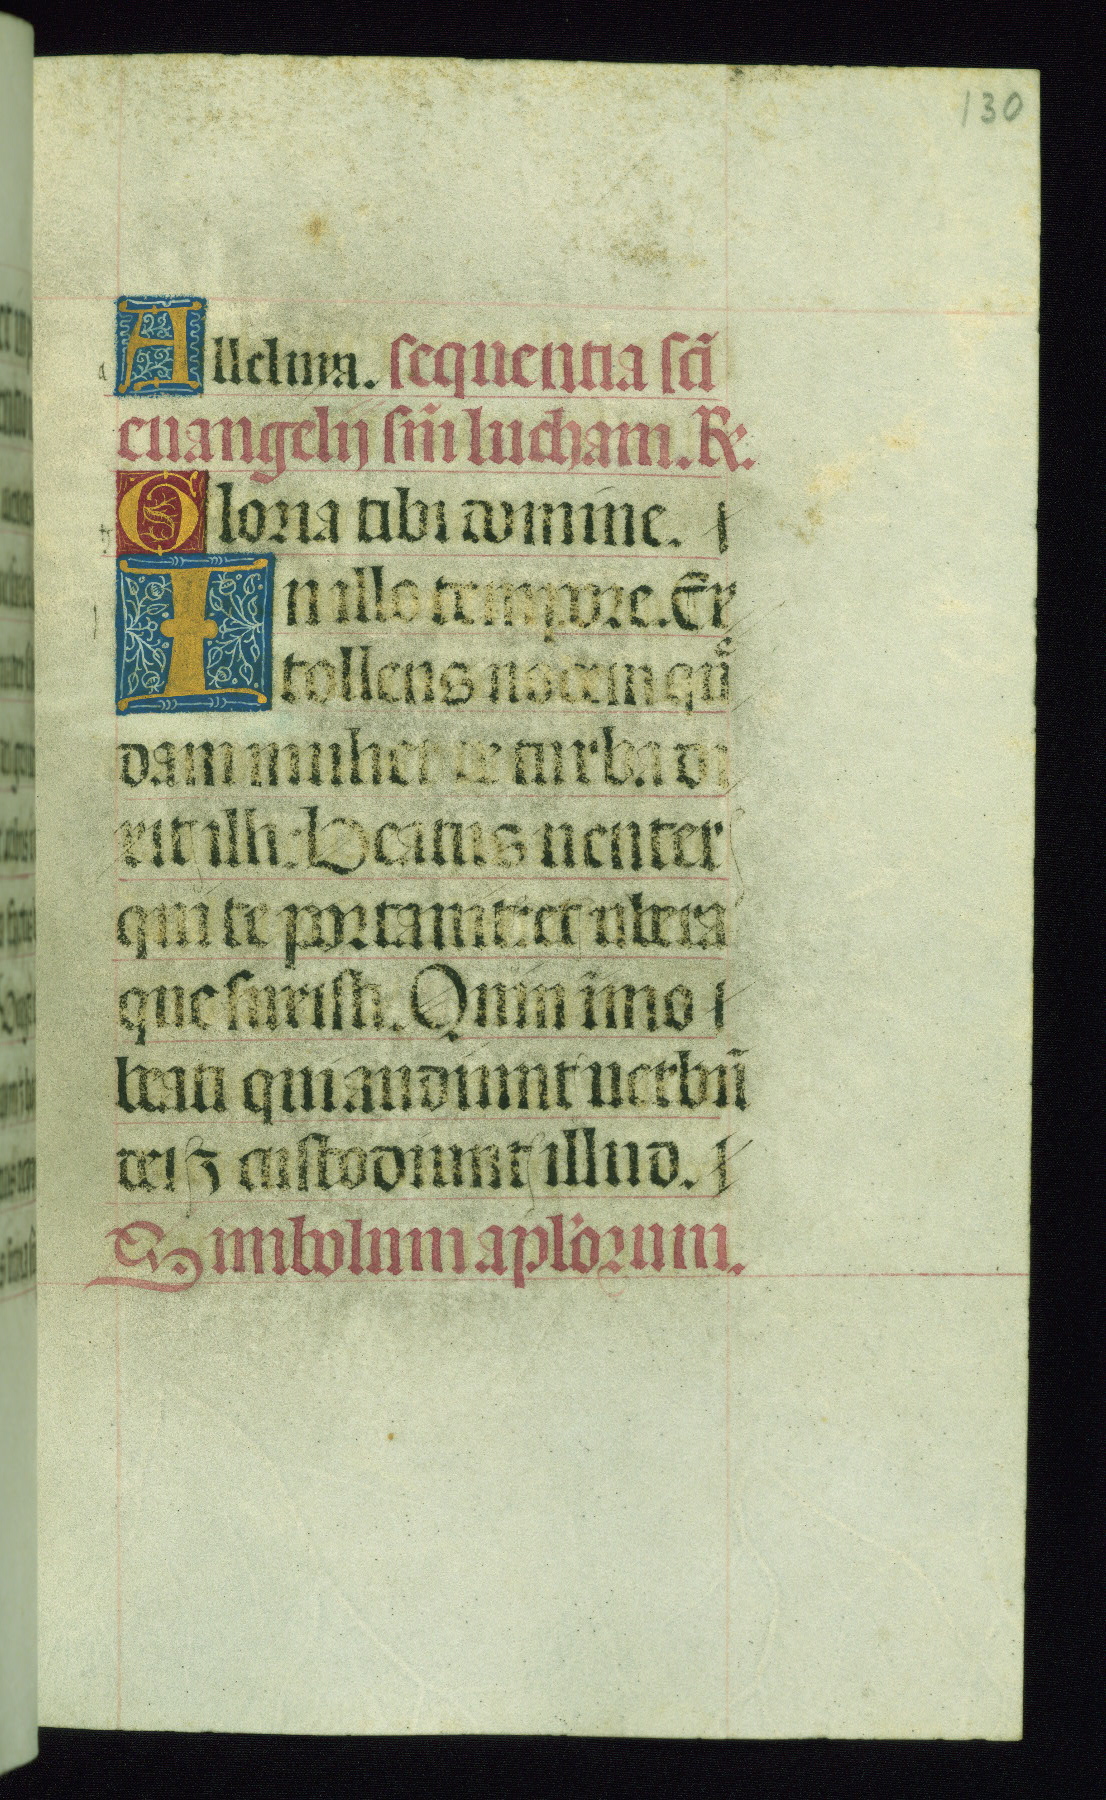 130
Alleluia. sequentia scī
euangelij sm̄ lucham. R.
Gloria tibi domine.
In illo tempore. Ex
tollens uocem qū
dam mulier de turba di
xit illi. Beatus uenter
qui te portauit: et ubera
que suxisti. Quin īmo
beati qui audiunt uerbū
dei ꝫ custodiunt illud.
Simbolum apl'orum.